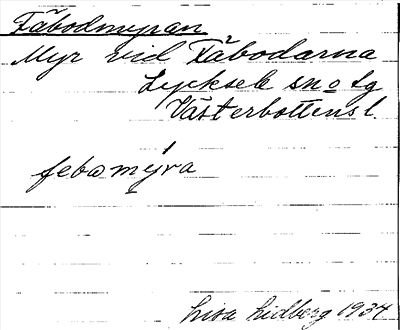 Fäbodmyran
Myr vid Fäbodarna
Lycksele sn o Lg
Västerbottens l
febomýra
Lisa Lidberg 1934